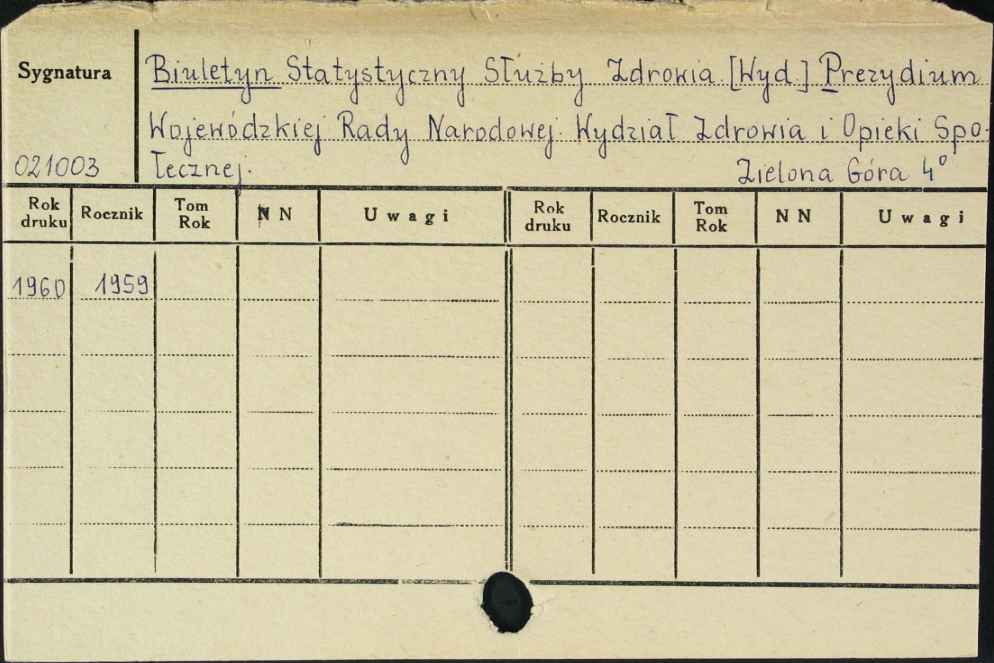 Sygnatura
Biuletyn Statystyczny Służby Zdrowia [Wyd.] Prezydium
Wojewódzkiej Rady Narodowej. Wydział Zdrowia i Opieki Spo-
021003 łecznej. Zielona Góra 4°
Rok druku Rocznik Tom Rok N N Uwagi Rok druku Rocznik Tom Rok N N Uwagi
1960 1959